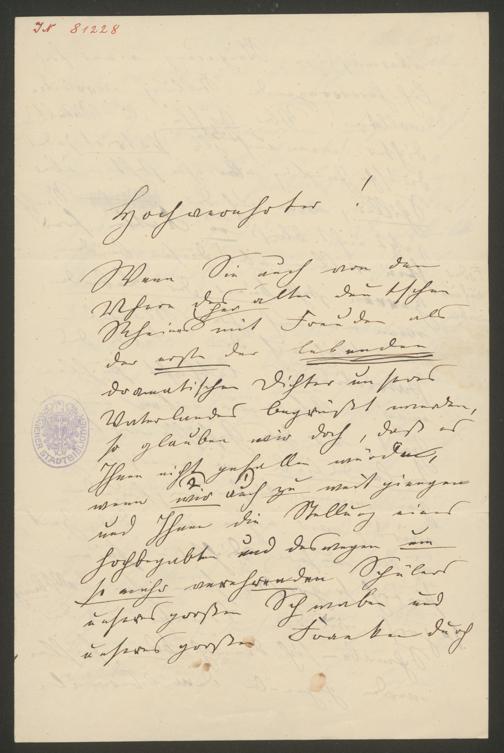 IN 81228
Hochverehrter!
Wenn Sie auch von den
Ufern des alten deutschen
Rheines mit Freuden als
der erste der lebenden
dramatischen Dichter unseres
Vaterlandes begrüßt werden,
so glauben wir doch, daß es
Ihnen nicht gefallen würde,
wenn wir auch zu weit giengen
und Ihnen die Stellung eines
hochbegabten und deswegen um
so mehr verehrenden Schülers
unseres großen Schwaben und
unseres großen Franken durch